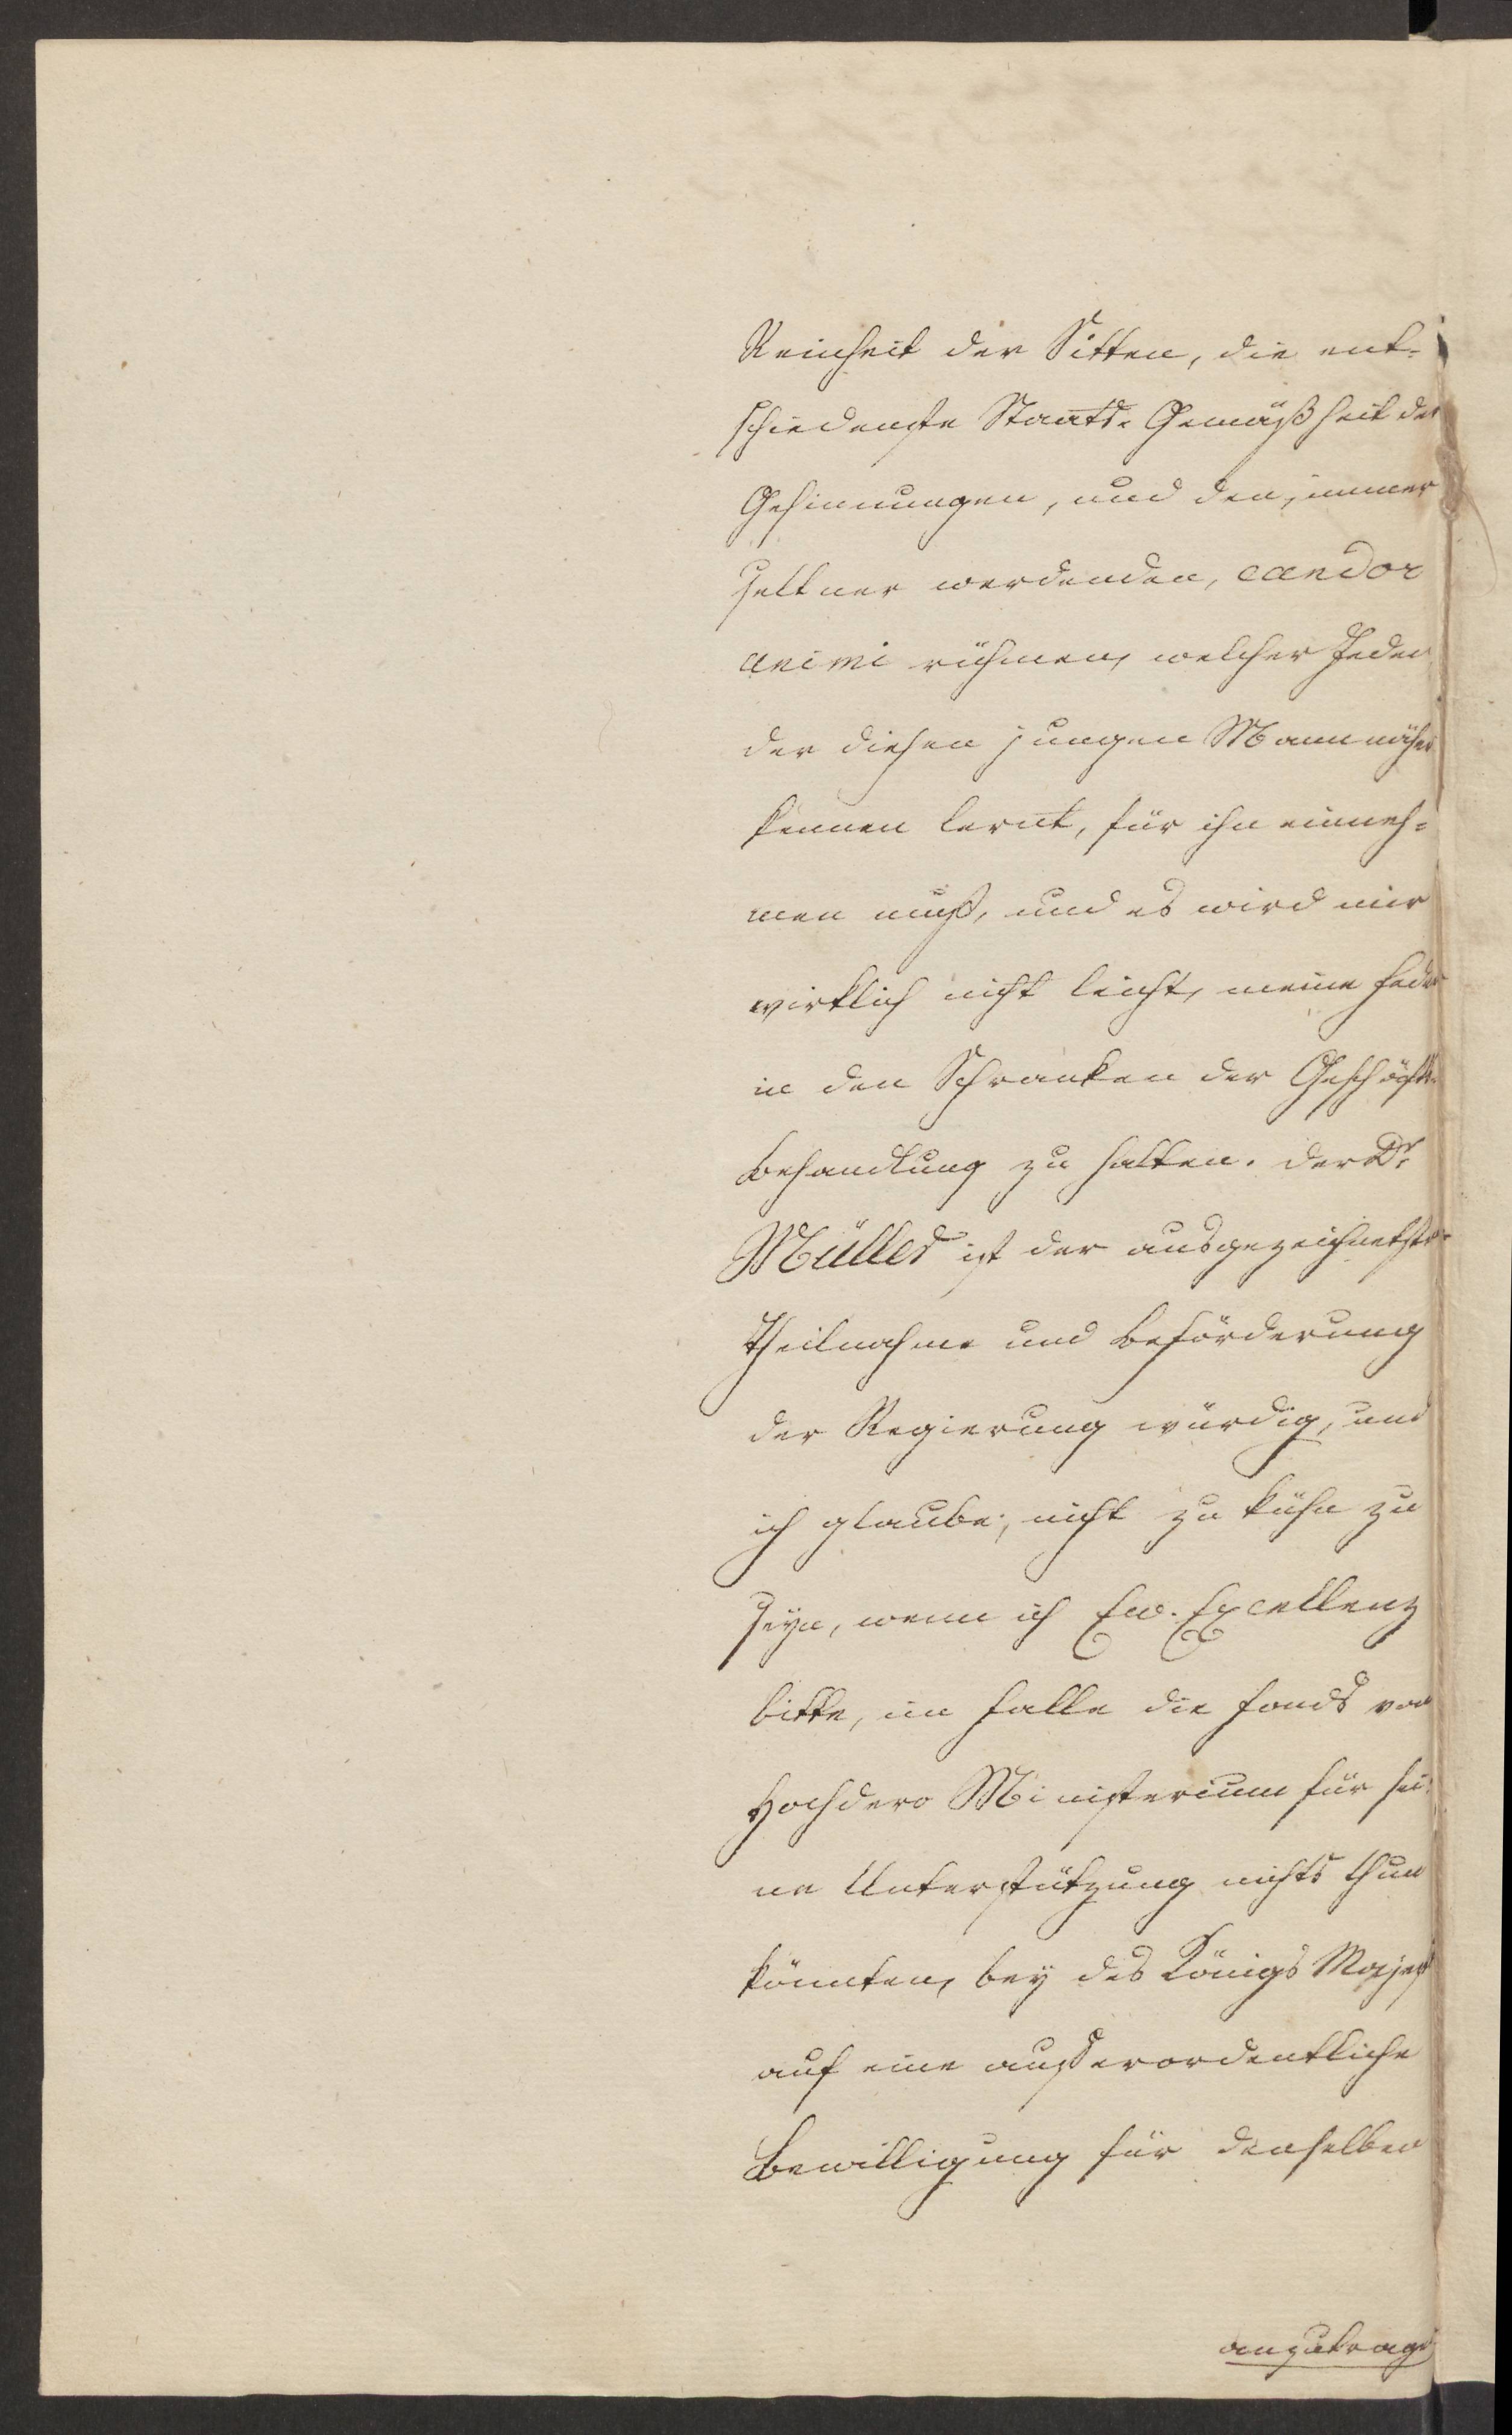 Reinheit der Sitten, die ent-
schiedenste Staats-Gemäßheit der
Gesinnungen, und den, immer
seltner werdenden, candor
animi rühmen, welcher Jeden
der diesen jungen Mann näher
kennen lernt, für ihn einneh-
men muß, und es wird mir
wirklich nicht leicht, meine Feder
in den Schranken der Geschäfts-
behandlung zu halten. Der Dr
Müller ist der ausgezeichnetsten
Theilnahme und Beförderung
der Regierung würdig, und
ich glaube, nicht zu kühn zu
seyn, wenn ich Ew. Excellenz
bitte, im Falle die Fonds von
Hochdero Ministerium für sei-
ne Unterstützung nichts thun
könnten, bey des Königs Majest
auf eine außerordentliche
Bewilligung für denselben
anzutragen